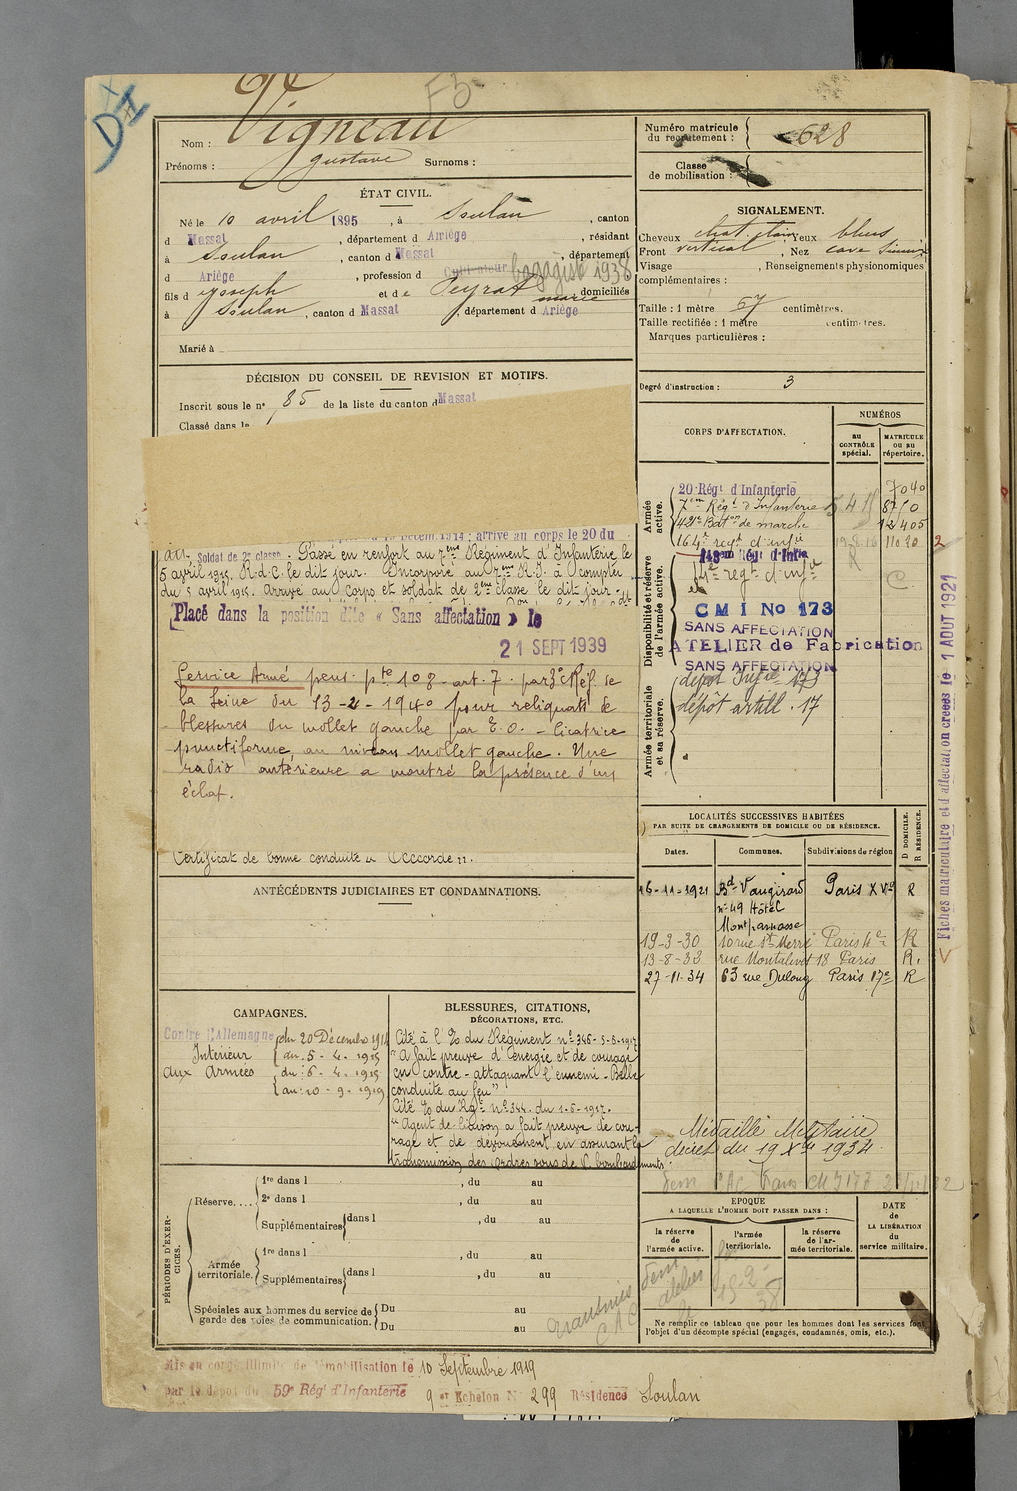 DII
F5
Nom : Vigneau
Prénoms : Gustave Surnoms :
ÉTAT CIVIL.
Né le 10 avril 1895, à Soulan, canton
d Massat, département d Ariège, résidant
à Soulan, canton d Massat, département
d Ariège, profession d Cultivateur bagagiste 1938
fils d Joseph et de Peyrat marie domiciliés
à Soulan, canton d Massat, département d Ariège
Marié à
DÉCISION DU CONSEIL DE REVISION ET MOTIFS.
Inscrit sous le n° 85 de la liste du canton d Massat
Classé dans la
arrivé au corps le 20 du
dit. Soldat de 2e classe. Passé en renfort au 7me Régiment d'Infanterie le
5 avril 1915. R.d.C. le dit jour. Incorporé au 7me R.I. à compter
du 5 avril 1915. Arrivé au corps et soldat de 2me classe le dit jour.
Placé dans la position dite « Sans affectation » le
21 SEPT 1939
Service Armé pens. pte 108 - art. 7 - par 3e C. Réf. de
la Seine du 13-2-1940 pour reliquats de
blessures du mollet gauche par E.O. - Cicatrice
punctiforme au niveau mollet gauche. Une
radio antérieure a montré la présence d'un
éclat.
Certificat de bonne conduite "Accordé".
ANTÉCÉDENTS JUDICIAIRES ET CONDAMNATIONS.
CAMPAGNES.
Contre l'Allemagne du 20 Décembre 1914
Intérieur au 5 - 4 - 1915
aux Armées du 6 - 4 - 1915
au 10 - 9 - 1919
BLESSURES, CITATIONS,
DÉCORATIONS, ETC.
Cité à l'O/ du Régiment n° 346 - 5-8-1917
"A fait preuve d'énergie et de courage
en contre-attaquant l'ennemi - Belle
conduite au feu"
Cité O/ du Rgt n° 344 du 1-6-1917.
"Agent de liaison a fait preuve de cou-
rage et de dévouement en assurant la
transmission des ordres sous de V. bombardements.
PÉRIODES D'EXER-
CICES.
Réserve....
1re dans l , du au
2e dans l , du au
Supplémentaires dans l , du au
Armée
territoriale.
1re dans l , du au
Supplémentaires dans l , du au
Spéciales aux hommes du service de
garde des voies de communication.
Du au
Du au
Mis en congé illimité de démobilisation le 10 Septembre 1919
par le dépôt du 59e Rég' d'Infanterie
9 er Echelon N° 299 Résidence Soulan
Numéro matricule
du recrutement : 628
Classe
de mobilisation :
SIGNALEMENT.
Cheveux chat. clair Yeux bleus
Front vertical, Nez cave
Visage , Renseignements physionomiques
complémentaires :
Taille : 1 mètre 67 centimètres.
Taille rectifiée : 1 mètre centimètres.
Marques particulières :
Degré d'instruction : 3
CORPS D'AFFECTATION.
NUMÉROS
au
CONTRÔLE
spécial.
MATRICULE
ou au
répertoire.
Armée
active.
20 Régt d'Infanterie 7040
7em Régt d'Infanterie 8710
42e Baton de marche 12405
164e regt d'infie 1120
Disponibilité et réserve
de l'armée active.
14e regt d'infie
C M I No 173
SANS AFFECTATION
ATELIER de Fabrication
SANS AFFECTATION
Armée territoriale
et sa réserve.
dépot Infie 173
dépôt artill. 17
Fiches matriculaire et d'affectation créées le 1 AOUT 1921
LOCALITÉS SUCCESSIVES HABITÉES
PAR SUITE DE CHANGEMENTS DE DOMICILE OU DE RÉSIDENCE.
Dates. Communes. Subdivisions de région
D DOMICILE.
R RÉSIDENCE.
16-11-1921 Bd Vaugirard Paris XVe R
n° 49 Hôtel
Montparnasse
19-3-30 10 rue St Merri Paris 4e R
13-8-33 rue Montalivet 18 Paris R.
27-11-34 63 rue Dulong Paris 17e R
Médaille Militaire
décret du 19 Xbre 1934
EPOQUE
A LAQUELLE L'HOMME DOIT PASSER DANS :
la réserve
de
l'armée active.
l'armée
territoriale.
la réserve
de l'ar-
mée territoriale.
DATE
de
LA LIBÉRATION
du
service militaire.
15-2-
38
Ne remplir ce tableau que pour les hommes dont les services font
l'objet d'un décompte spécial (engagés, condamnés, omis, etc.).